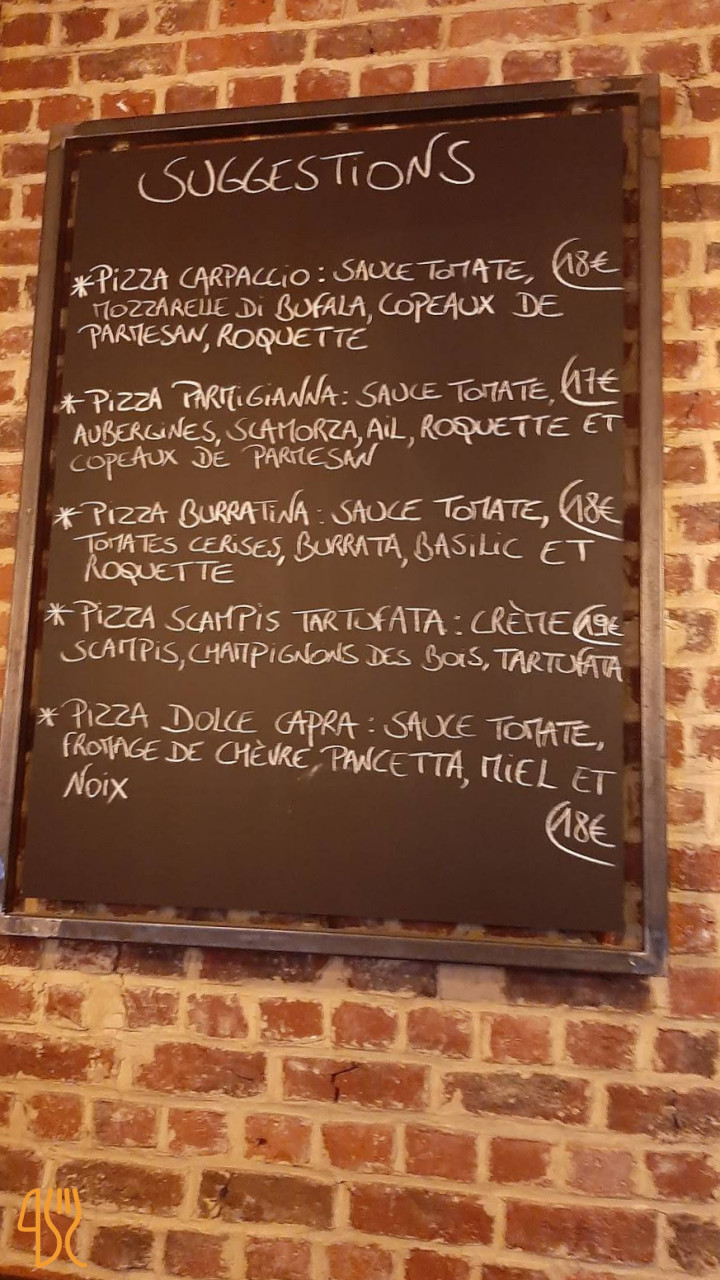 SUGGESTIONS
*PIZZA CARPACCIO : SAUCE TOMATE, 18€
MOZZARELLE Di BUFALA, COPEAUX DE
PARMESAN, ROQUETTE
* PIZZA PARMIGIANNA : SAUCE TOMATE, 17€
AUBERGINES, SCAMORZA, AIL, ROQUETTE ET
COPEAUX DE PARMESAN
* PIZZA BURRATINA : SAUCE TOMATE, 18€
TOMATES CERISES, BURRATA, BASILIC ET
ROQUETTE
* PIZZA SCAMPIS TARTUFATA : CRÈME 19€
SCAMPIS, CHAMPIGNONS DES BOIS, TARTUFATA
* PIZZA DOLCE CAPRA : SAUCE TOMATE,
FROMAGE DE CHÈVRE, PANCETTA, MIEL ET
NOIX
18€